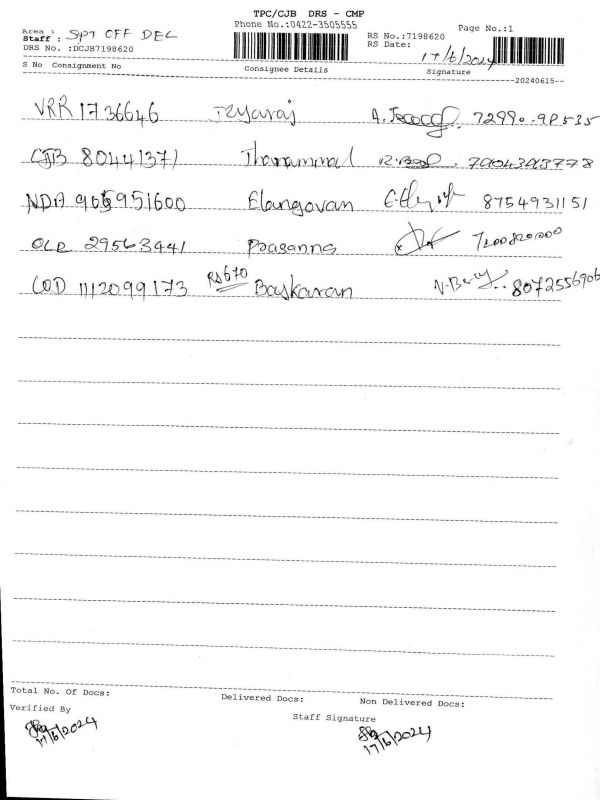 TPC/CJB DRS - CMP
Phone No.:0422-3505555
Page No.:1
Area :
Staff : SPT OFF DEL
RS No.:7198620
DRS No. :DCJB7198620
RS Date: 17/6/2024
S No Consignment No Consignee Details Signature
20240615
VRR 1736646
CJB 80441371 Thanammal 7904393778
NDA 905951600 Elangovan 8754931151
OLR 29563441 Prasanna 7200820000
COD 1112099173 RS 670 Baskaran 8072556906
Total No. Of Docs: Delivered Docs: Non Delivered Docs:
Verified By Staff Signature
17/6/2024 17/6/2024